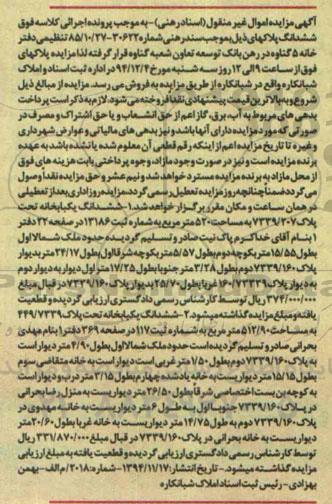 آگهی مزایده اموال غیر منقول (اسناد رهنی) - به موجب پرونده اجرائی کلاسه فوق
ششدانگ پلاکهای ذیل بموجب سند رهنی شماره ۳۰۶۲۲-۸۵/۱۰/۲۷ تنظیمی دفتر
خانه ۵ گناوه در رهن بانک توسعه تعاون شعبه گناوه قرار گرفته لذا مزایده پلاکهای
فوق از ساعت ۹ الی ۱۲ روز سه شنبه مورخ ۹۴/۱۲/۴ در اداره ثبت اسناد و املاک
شبانکاره واقع در شبانکاره از طریق مزایده به فروش می رسد. مزایده از مبالغ ذیل
شروع و به بالاترین قیمت پیشنهادی نقدا فروخته می شود. لازم به ذکر است پرداخت
بدهی های مربوط به آب، برق، گاز اعم از حق انشعاب و یا حق اشتراک و مصرف در
صورتی که مورد مزایده دارای آنها باشد و نیز بدهی های مالیاتی و عوارض شهرداری
و غیره تا تاریخ مزایده اعم از اینکه رقم قطعی آن معلوم شده یا نشده باشد به عهده
برنده مزایده است و نیز در صورت وجود مازاد، وجوه پرداختی بابت هزینه های فوق
از محل مازاد به برنده مزایده مسترد خواهد شد و نیم عشر و حق مزایده نقدا وصول
می گردد ضمنا چنانچه روز مزایده تعطیل رسمی گردد مزایده روز اداری بعد از تعطیلی
در همان ساعت و مکان مقرر برگزار خواهد شد. ۱- ششدانگ یکبابخانه تحت
پلاک ۷۳۳۹/۲۰۷ به مساحت ۵۲۰ متر مربع به شماره ثبت ۱۳۱۸۶ در صفحه ۲۲ دفتر
۱ بنام آقای خداکرم پاک نیت صادر و تسلیم گردیده حدود ملک شمالا اول
بطول ۱۵/۵۵ متر بکوچه دوم بطول ۵/۵۷ متر بکوچه شرقا اول بطول ۲۴/۱۷ متر بدیوار
پلاک ۷۳۳۹/۱۶۰ دوم بطول ۳/۲۸ متر جنوبا بطول ۱۷/۲۵ متر اول دیوار به دیوار دوم
به دیوار پلاک ۷۳۳۹/۱۶۰ غربا بطول ۲۵/۷۰ بدیوار پلاک ۷۳۳۹/۱۶۰ در قبال مبلغ
۳۷۴/۰۰۰/۰۰۰ ریال توسط کارشناس رسمی دادگستری ارزیابی گردیده و قطعیت
یافته و مبلغ مزایده گذاشته میشود. ۲- ششدانگ یکبابخانه تحت پلاک ۴۴۹/۷۳۳۹
به مساحت ۵۱۲/۹۰ متر مربع به شماره ثبت ۱۱۷ در صفحه ۳۶۹ دفتر ۱ بنام مهدی
بحرانی صادر و تسلیم گردیده است حدود ملک شمالا اول بطول ۴/۹۰ متر دیواریست
به پلاک ۷۳۳۹/۱۶۰ دوم بطول ۷/۵۰ متر غربی است دیواریست به خانه متقاضی سوم
بطول ۱۵/۱۵ متر دیواریست به خانه یاد شده چهارم بطول ۳/۱۵ متر درب و دیوار است
به کوچه بن بست اختصاصی شرقا بطول ۲۶/۵۰ متر دیواریست به منزل رضا بحرانی
در پلاک ۷۳۳۹/۱۶۰ جنوبا اول به طول ۶ متر دیواریست به خانه مهدوی در
پلاک ۷۳۳۹/۱۶۰ دوم به طول ۱۴/۷۵ متر دیواریست به خانه غربا بطول ۲۰/۶۰ متر
دیواریست به خانه بحرانی در پلاک ۷۳۳۹/۱۶۰ در قبال مبلغ ۳۳۱/۸۷۰/۰۰۰ ریال
توسط کارشناس رسمی دادگستری ارزیابی گردیده و قطعیت یافته به مبلغ ارزیابی
مزایده گذاشته میشود. - تاریخ انتشار: ۱۳۹۴/۱۱/۱۷ - شماره: ۲۰۱۸/م الف - بهمن
بهزادی - رئیس ثبت اسناد املاک شبانکاره